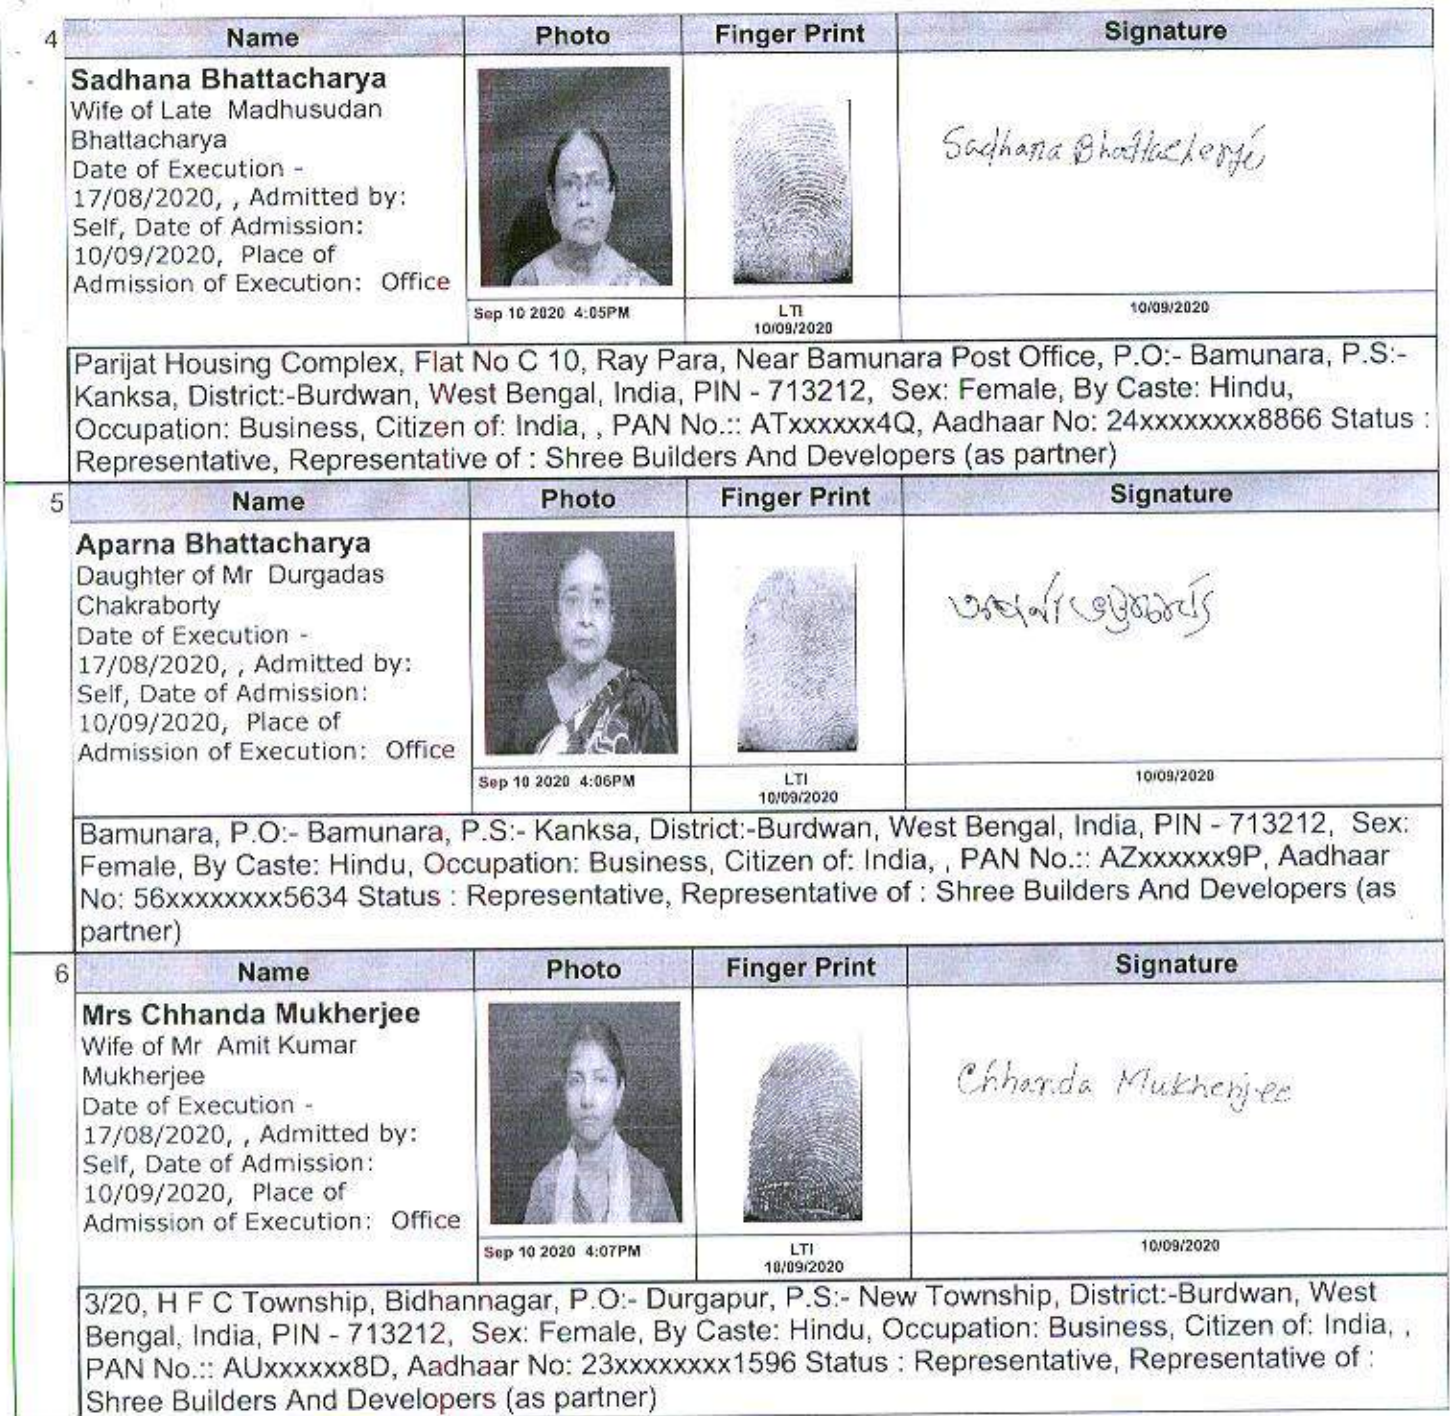 4 Name Photo Finger Print Signature
Sadhana Bhattacharya
Wife of Late Madhusudan
Bhattacharya
Date of Execution -
17/08/2020, , Admitted by:
Self, Date of Admission:
10/09/2020, Place of
Admission of Execution: Office
Sadhana Bhattacherjé
Sep 10 2020 4:05PM
LTI
10/09/2020
10/09/2020
Parijat Housing Complex, Flat No C 10, Ray Para, Near Bamunara Post Office, P.O:- Bamunara, P.S:-
Kanksa, District:-Burdwan, West Bengal, India, PIN - 713212, Sex: Female, By Caste: Hindu,
Occupation: Business, Citizen of: India, , PAN No.:: ATxxxxxx4Q, Aadhaar No: 24xxxxxxxx8866 Status :
Representative, Representative of : Shree Builders And Developers (as partner)
5 Name Photo Finger Print Signature
Aparna Bhattacharya
Daughter of Mr Durgadas
Chakraborty
Date of Execution -
17/08/2020, , Admitted by:
Self, Date of Admission:
10/09/2020, Place of
Admission of Execution: Office
অপর্ণা ভট্টাচার্য
Sep 10 2020 4:06PM
LTI
10/09/2020
10/09/2020
Bamunara, P.O:- Bamunara, P.S:- Kanksa, District:-Burdwan, West Bengal, India, PIN - 713212, Sex:
Female, By Caste: Hindu, Occupation: Business, Citizen of: India, , PAN No.:: AZxxxxxx9P, Aadhaar
No: 56xxxxxxxx5634 Status : Representative, Representative of : Shree Builders And Developers (as
partner)
6 Name Photo Finger Print Signature
Mrs Chhanda Mukherjee
Wife of Mr Amit Kumar
Mukherjee
Date of Execution -
17/08/2020, , Admitted by:
Self, Date of Admission:
10/09/2020, Place of
Admission of Execution: Office
Chhanda Mukherjee
Sep 10 2020 4:07PM
LTI
10/09/2020
10/09/2020
3/20, H F C Township, Bidhannagar, P.O:- Durgapur, P.S:- New Township, District:-Burdwan, West
Bengal, India, PIN - 713212, Sex: Female, By Caste: Hindu, Occupation: Business, Citizen of: India, ,
PAN No.:: AUxxxxxx8D, Aadhaar No: 23xxxxxxxx1596 Status : Representative, Representative of :
Shree Builders And Developers (as partner)